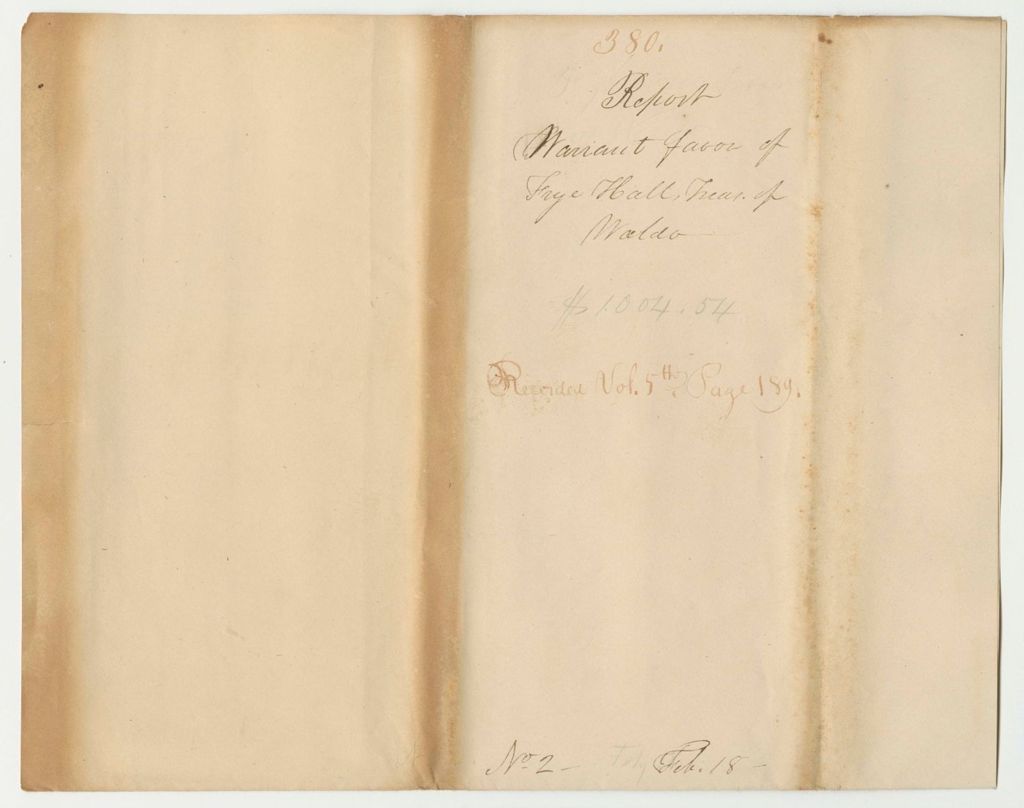 380.
Report
Warrant favor of
Frye Hall, Treas. of
Waldo
$1.004.54
Recorded Vol. 5th Page 189.
No 2 - Feb. 18 -